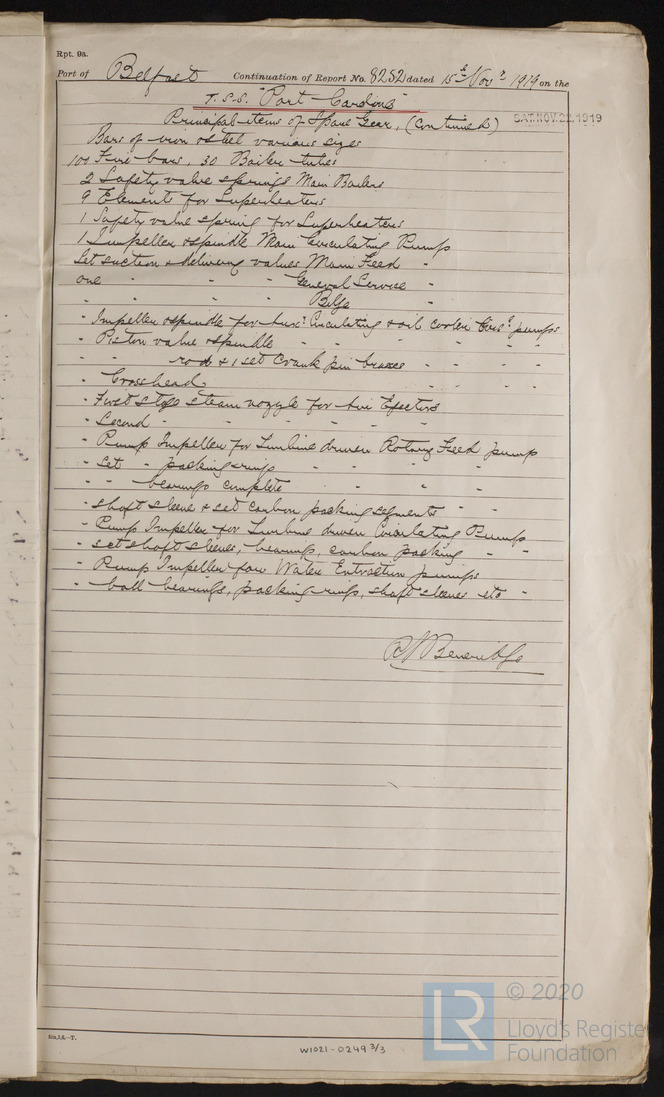 Rpt. 9a.
Port of Belfast Continuation of Report No. 8252 dated 15th Novr 1919 on the
T.S.S. "Port Cardinia"
Principal items of Spare Gear, (Continued) SAT. NOV. 22. 1919
Bars of iron & steel various sizes
100 Fire bars, 30 Boiler tubes
2 Safety valve springs Main Boilers
9 Elements for Superheaters
1 Safety valve spring for Superheaters
1 Impeller & spindle Main Circulating Pump
Set suction & delivery valves Main Feed "
one " " " General Service "
" " " " Bilge "
" Impeller & spindle for Auxy Circulating & oil cooler Circg pumps
" Piston valve & spindle " " " " "
" " rod & 1 set Crank pin brasses " " " "
" Crosshead " " " "
" First stage steam nozzle for Air Ejectors
" Second " " " " "
" Pump Impeller for Turbine driven Rotary Feed pump
" Set " packing rings " " " "
" " bearings complete " " "
" shaft sleeve & set carbon packing segments " "
" Pump Impeller for Turbine driven Circulating Pump
" set shaft sleeves, bearings, carbon packing " "
" Pump Impeller for Water Extraction pumps
" ball bearings, packing rings, shaft sleeves etc "
R J Beveridge
W1021-0249 3/3
LR
© 2020
Lloyd's Register
Foundation